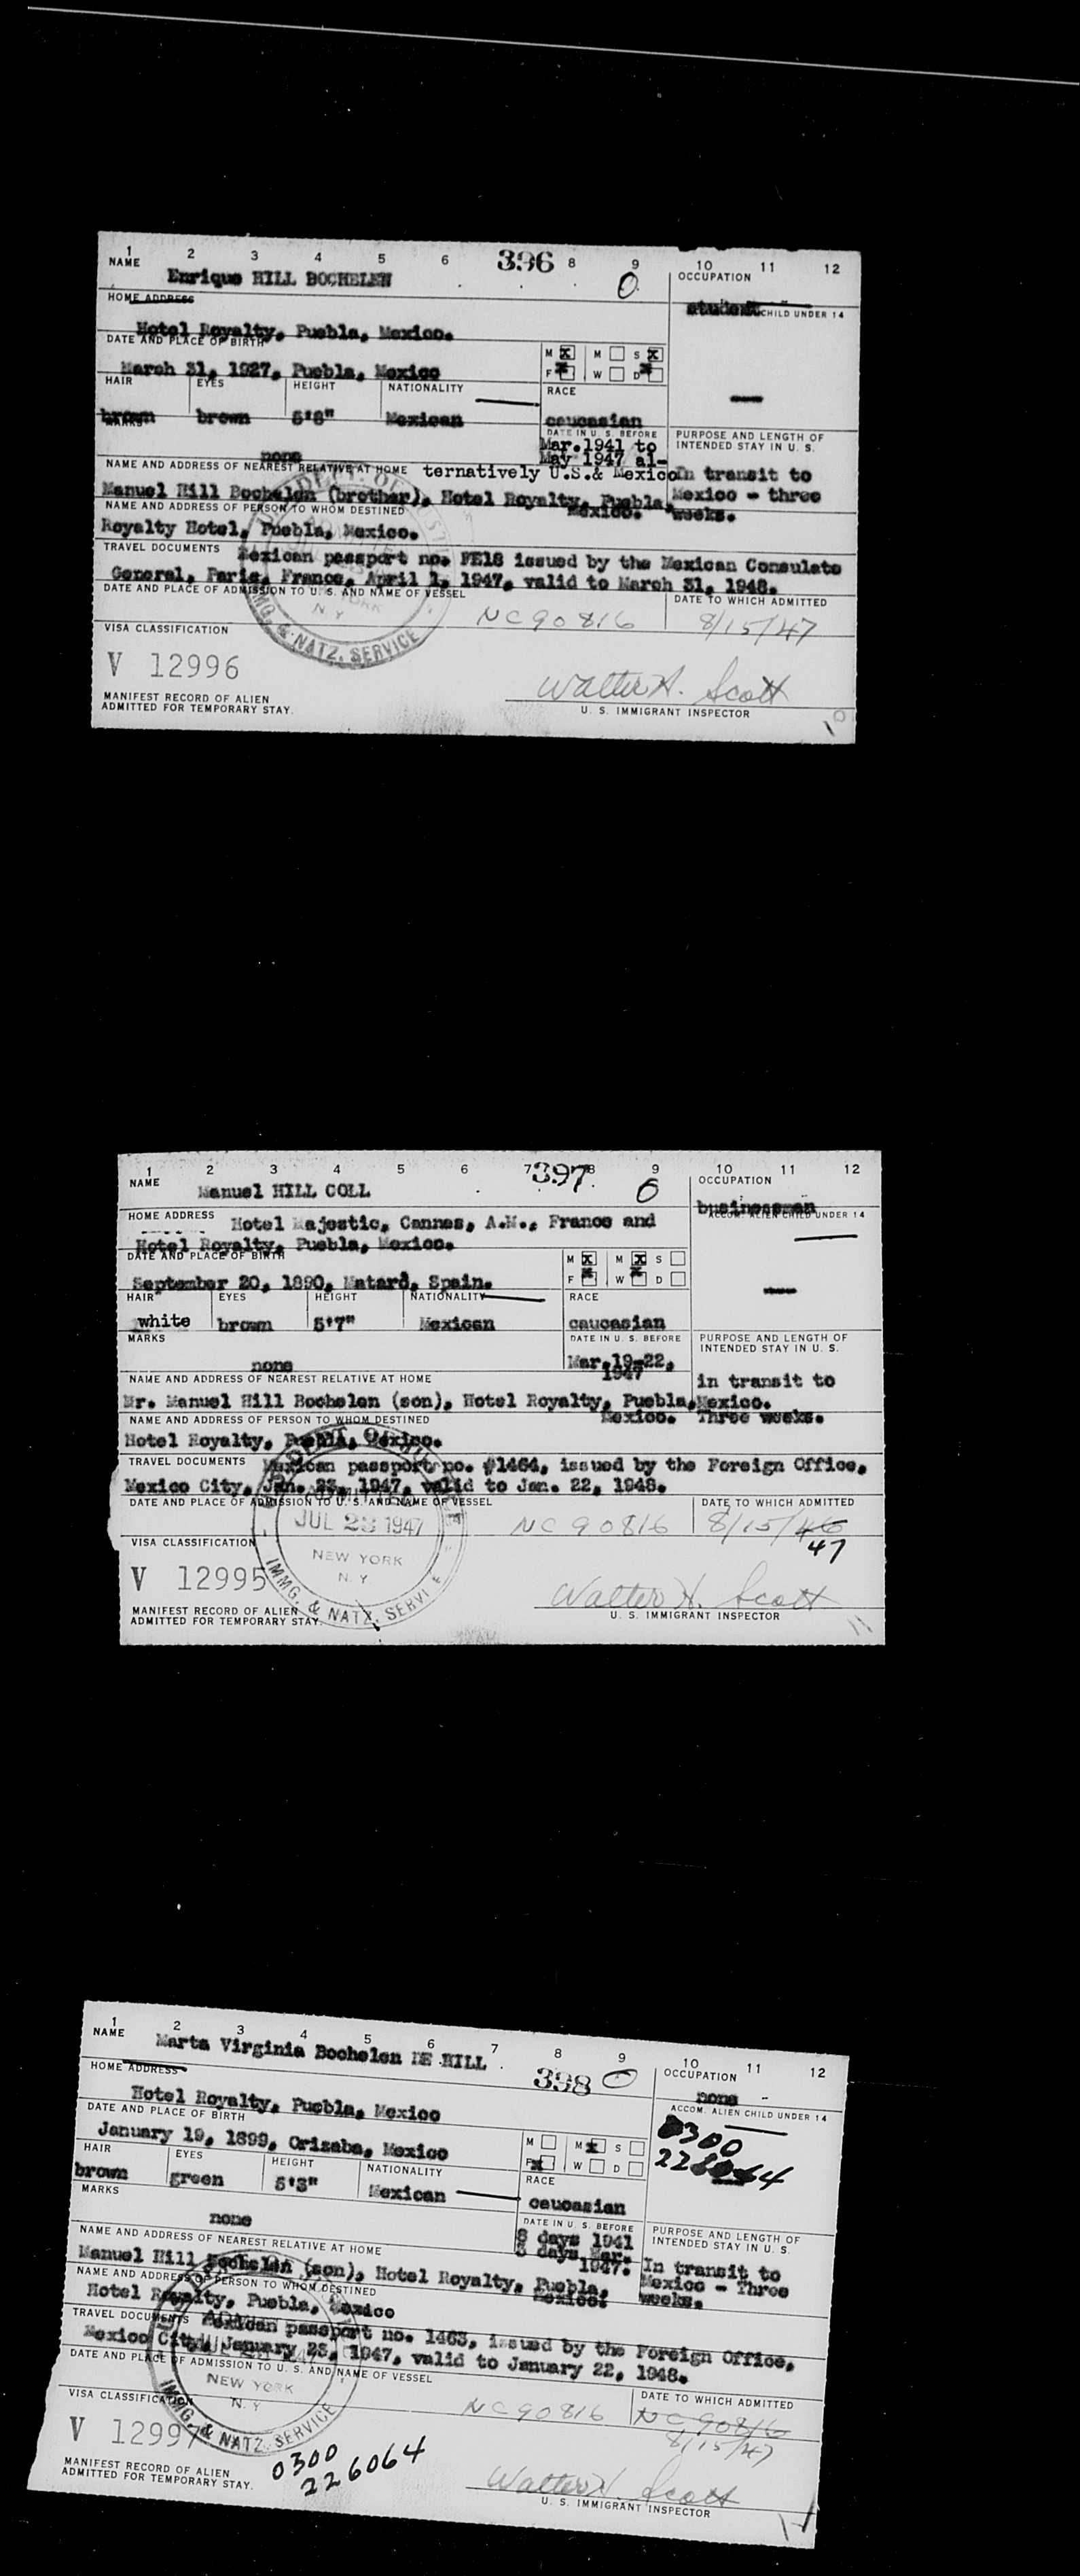 1 2 3 4 5 6 396 8 9 10 11 12
NAME
Enrique HILL BOCHELEN
0
OCCUPATION
HOME ADDRESS
student
CHILD UNDER 14
Hotel Royalty, Puebla, Mexico.
DATE AND PLACE OF BIRTH
March 31, 1927, Puebla, Mexico
M X M S X
F X W D X
HAIR EYES HEIGHT NATIONALITY RACE
brown brown 5'8" Mexican caucasian
MARKS
none
DATE IN U. S. BEFORE
Mar.1941 to
May 1947 al-
ternatively U.S.& Mexico
PURPOSE AND LENGTH OF
INTENDED STAY IN U. S.
In transit to
Mexico - three
weeks.
NAME AND ADDRESS OF NEAREST RELATIVE AT HOME
Manuel Hill Bochelen (brother), Hotel Royalty, Puebla,
Mexico.
NAME AND ADDRESS OF PERSON TO WHOM DESTINED
Royalty Hotel, Puebla, Mexico.
TRAVEL DOCUMENTS
Mexican passport no. FE18 issued by the Mexican Consulate
General, Paris, France, April 1, 1947, valid to March 31, 1948.
DATE AND PLACE OF ADMISSION TO U. S. AND NAME OF VESSEL
DATE TO WHICH ADMITTED
NC90816
8/15/47
N Y
IMMG. & NATZ. SERVICE
VISA CLASSIFICATION
V 12996
Walter H. Scott
MANIFEST RECORD OF ALIEN
ADMITTED FOR TEMPORARY STAY.
U. S. IMMIGRANT INSPECTOR
1 2 3 4 5 6 7 397 8 9 10 11 12
NAME
Manuel HILL COLL
0
OCCUPATION
businessman
ACCOM. ALIEN CHILD UNDER 14
HOME ADDRESS
Hotel Majestic, Cannes, A.M., France and
Hotel Royalty, Puebla, Mexico.
DATE AND PLACE OF BIRTH
September 20, 1890, Mataró, Spain.
M X M X S
F X W X D
HAIR EYES HEIGHT NATIONALITY RACE
white brown 5'7" Mexican caucasian
MARKS
none
DATE IN U. S. BEFORE
Mar.19-22,
1947
PURPOSE AND LENGTH OF
INTENDED STAY IN U. S.
in transit to
Mexico.
Three weeks.
NAME AND ADDRESS OF NEAREST RELATIVE AT HOME
Mr. Manuel Hill Bochelen (son), Hotel Royalty, Puebla,
Mexico.
NAME AND ADDRESS OF PERSON TO WHOM DESTINED
Hotel Royalty, Puebla, Mexico.
TRAVEL DOCUMENTS
Mexican passport no. #1464, issued by the Foreign Office,
Mexico City, Jan. 23, 1947, valid to Jan. 22, 1948.
DATE AND PLACE OF ADMISSION TO U. S. AND NAME OF VESSEL
DATE TO WHICH ADMITTED
JUL 23 1947
NEW YORK
N. Y
IMMG. & NATZ. SERVICE
NC90816
8/15/46
47
VISA CLASSIFICATION
V 12995
Walter H. Scott
MANIFEST RECORD OF ALIEN
ADMITTED FOR TEMPORARY STAY.
U. S. IMMIGRANT INSPECTOR
11
1 2 3 4 5 6 7 8 9 10 11 12
NAME
Marta Virginia Bochelen DE HILL
398 0
OCCUPATION
none
ACCOM. ALIEN CHILD UNDER 14
0300
226064
HOME ADDRESS
Hotel Royalty, Puebla, Mexico
DATE AND PLACE OF BIRTH
January 19, 1899, Orizaba, Mexico
M M X S
F X W D
HAIR EYES HEIGHT NATIONALITY RACE
brown green 5'3" Mexican caucasian
MARKS
none
DATE IN U. S. BEFORE
8 days 1941
3 days Mar.
1947.
PURPOSE AND LENGTH OF
INTENDED STAY IN U. S.
In transit to
Mexico - Three
weeks.
NAME AND ADDRESS OF NEAREST RELATIVE AT HOME
Manuel Hill Bochelen (son), Hotel Royalty, Puebla,
Mexico.
NAME AND ADDRESS OF PERSON TO WHOM DESTINED
Hotel Royalty, Puebla, Mexico
TRAVEL DOCUMENTS
Mexican passport no. 1463, issued by the Foreign Office,
Mexico City, January 23, 1947, valid to January 22, 1948.
DATE AND PLACE OF ADMISSION TO U. S. AND NAME OF VESSEL
DATE TO WHICH ADMITTED
NEW YORK
N. Y
IMMG. & NATZ. SERVICE
NC90816
NC 90816
8/15/47
VISA CLASSIFICATION
V 12997
0300
226064
Walter H. Scott
MANIFEST RECORD OF ALIEN
ADMITTED FOR TEMPORARY STAY.
U. S. IMMIGRANT INSPECTOR